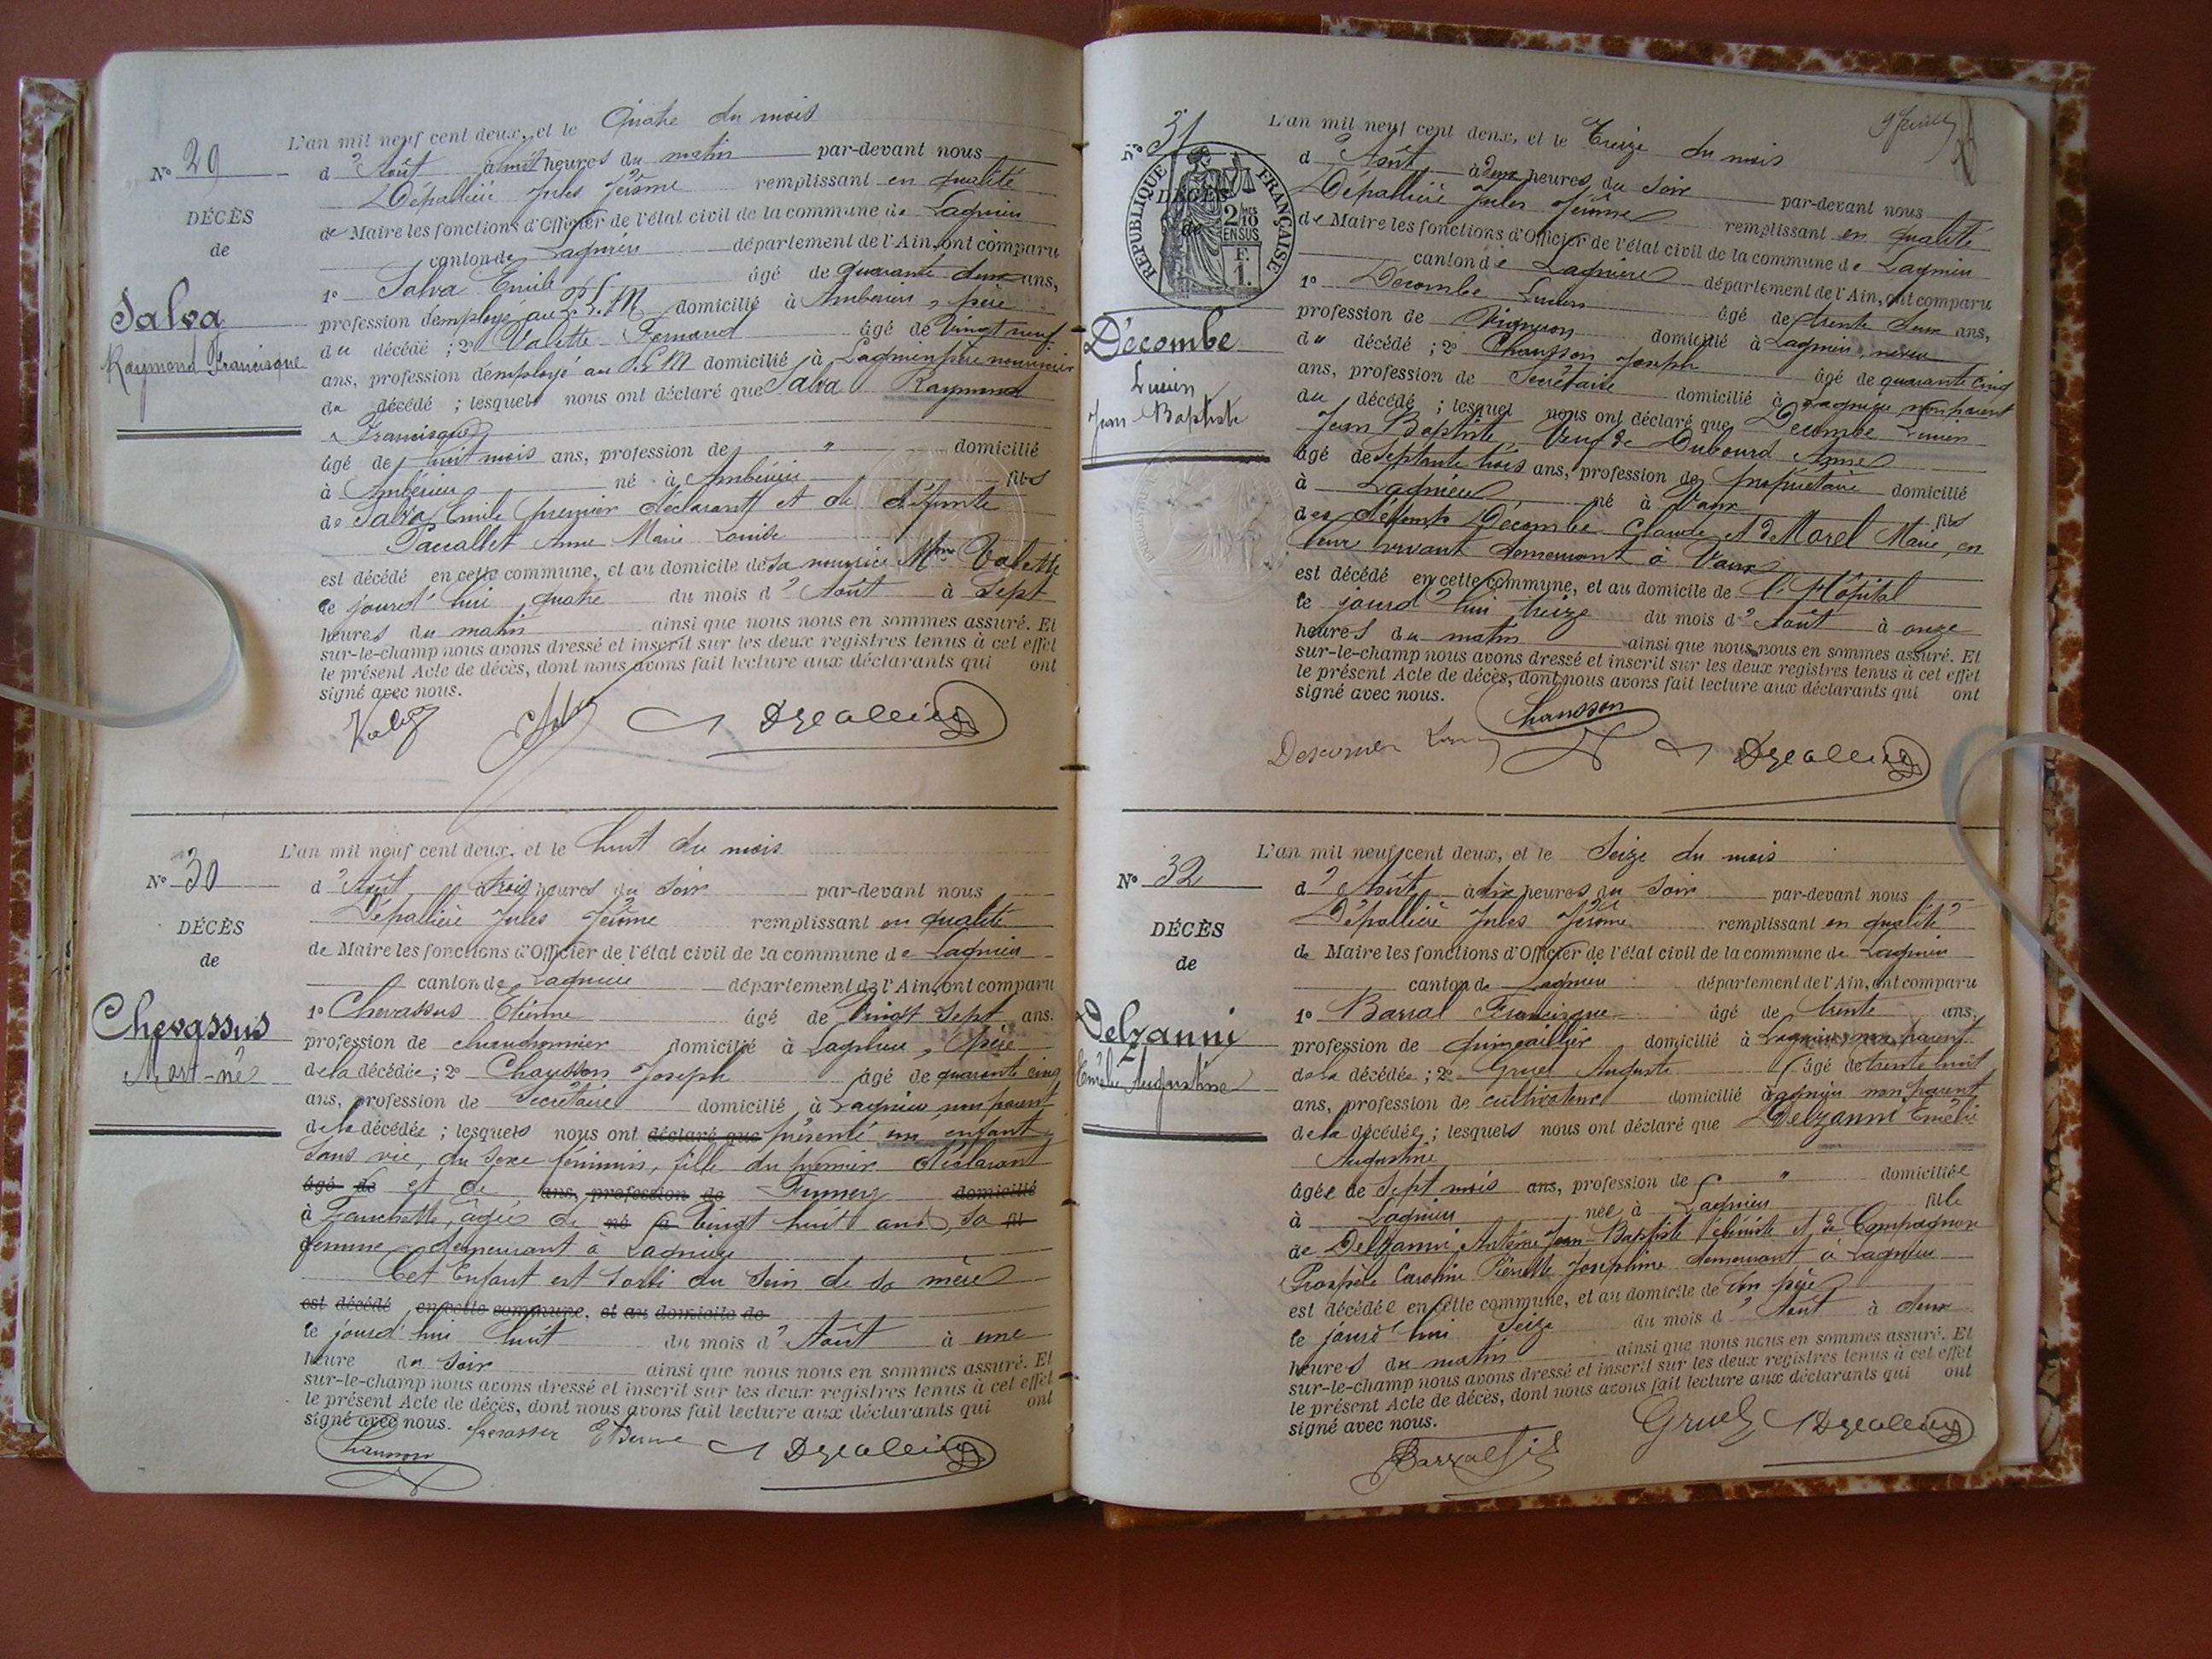 L'an mil neuf cent deux, et le Quatre du mois
N° 29
d'Août à huit heures du matin par-devant nous
Dépallière Jules Jérôme remplissant en qualité
DÉCÈS
de Maire les fonctions d'Officier de l'état civil de la commune de Lagnieu
de
canton de Lagnieu département de l'Ain, ont comparu
1° Salva Emile âgé de quarante deux ans,
Salva
profession d'employé au P.L.M domicilié à Ambérieu, père
Raymond Francisque
du décédé ; 2° Valette Fernand âgé de Vingt neuf
ans, profession d'employé au P.L.M domicilié à Lagnieu père nourricier
du décédé ; lesquels nous ont déclaré que Salva Raymond
Francisque
âgé de huit mois ans, profession de " domicilié
à Ambérieu né à Ambérieu fils
de Salva Emile premier déclarant et de défunte
Anne Marie Louise
est décédé en cette commune, et au domicile de sa nourrice Mme Valette
le jourd'hui quatre du mois d'Août à Sept
heures du matin ainsi que nous nous en sommes assuré. Et
sur-le-champ nous avons dressé et inscrit sur les deux registres tenus à cet effet
le présent Acte de décès, dont nous avons fait lecture aux déclarants qui ont
signé avec nous.
L'an mil neuf cent deux, et le huit du mois
N° 30
d'Août à trois heures du soir par-devant nous
Dépallière Jules Jérôme remplissant en qualité
DÉCÈS
de Maire les fonctions d'Officier de l'état civil de la commune de Lagnieu
de
canton de Lagnieu département de l'Ain, ont comparu
1° Chevassus Etienne âgé de Vingt Sept ans.
Chevassus
profession de chaudronnier domicilié à Lagnieu, père
Mort-né
de la décédée ; 2° Chausson Joseph âgé de quarante cinq
ans, profession de Secrétaire domicilié à Lagnieu non parent
de la décédée ; lesquels nous ont déclaré que présenté un enfant
sans vie, du sexe féminin, fille du premier déclarant
âgé de et de ans, profession de domicilié
à âgée de né à Vingt huit ans, sa
femme demeurant à Lagnieu
Cet Enfant est sorti du sein de sa mère
est décédé en cette commune, et au domicile de
le jourd'hui huit du mois d'Août à une
heure du soir ainsi que nous nous en sommes assuré. Et
sur-le-champ nous avons dressé et inscrit sur les deux registres tenus à cet effet
le présent Acte de décès, dont nous avons fait lecture aux déclarants qui ont
signé avec nous.
Chausson
L'an mil neuf cent deux, et le Treize du mois
N° 31
d'Août à deux heures du soir par-devant nous
Dépallière Jules Jérôme remplissant en qualité
RÉPUBLIQUE FRANÇAISE
DÉCÈS
de
de Maire les fonctions d'Officier de l'état civil de la commune de Lagnieu
canton de Lagnieu département de l'Ain, ont comparu
1° Décombe Lucien âgé de trente deux ans,
profession de Vigneron domicilié à Lagnieu, neveu
Décombe
Lucien
Jean Baptiste
du décédé ; 2° Chausson Joseph âgé de quarante cinq
ans, profession de Secrétaire domicilié à Lagnieu, non parent
du décédé ; lesquel nous ont déclaré que Décombe Lucien
Jean Baptiste, Veuf de Dubourd Anne
âgé de septante trois ans, profession de propriétaire domicilié
à Lagnieu né à Vaux fils
des défunts Décombe Claude et de Morel Marie, en
leur vivant demeurant à Vaux
est décédé en cette commune, et au domicile de l'Hôpital
le jourd'hui treize du mois d'Août à onze
heures du matin ainsi que nous nous en sommes assuré. Et
sur-le-champ nous avons dressé et inscrit sur les deux registres tenus à cet effet
le présent Acte de décès, dont nous avons fait lecture aux déclarants qui ont
signé avec nous.
Chausson
L'an mil neuf cent deux, et le Seize du mois
N° 32
d'Août à dix heures du soir par-devant nous
Dépallière Jules Jérôme remplissant en qualité
DÉCÈS
de Maire les fonctions d'Officier de l'état civil de la commune de Lagnieu
de
canton de Lagnieu département de l'Ain, ont comparu
1° Barral Francisque âgé de trente ans,
Delzanni
profession de quincaillier domicilié à Lagnieu, non parent
Emélie Augustine
de la décédée ; 2° Gruel Auguste âgé de trente huit
ans, profession de cultivateur domicilié à Lagnieu non parent
de la décédée ; lesquels nous ont déclaré que Delzanni Emélie
Augustine
âgée de sept mois ans, profession de " domiciliée
à Lagnieu née à Lagnieu fille
de Delzanni Antoine Jean-Baptiste et de Compagnon
Prospère Caroline Pierrette Joséphine demeurant à Lagnieu
est décédée en cette commune, et au domicile de son père
le jourd'hui Seize du mois d'Août à deux
heures du matin ainsi que nous nous en sommes assuré. Et
sur-le-champ nous avons dressé et inscrit sur les deux registres tenus à cet effet
le présent Acte de décès, dont nous avons fait lecture aux déclarants qui ont
signé avec nous.
Gruel
Barral fils